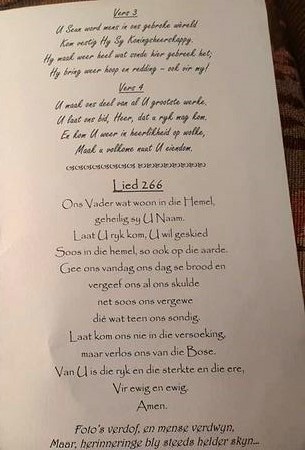 Vers 3
U Seun word mens in ons gebroke wêreld
Kom vestig Hy Sy Koningsheerskappy.
Hy maak weer heel wat sonde hier gebreek het;
Hy bring weer hoop en redding – ook vir my!
Vers 4
U maak ons deel van al U grootste werke.
U laat ons bid, Heer, dat u ryk mag kom.
En kom U weer in heerlikheid op wolke,
Maak u volkome nuut U eiendom.
Lied 266
Ons Vader wat woon in die Hemel,
geheilig sy U Naam.
Laat U ryk kom, U wil geskied
Soos in die hemel, so ook op die aarde.
Gee ons vandag ons dag se brood en
vergeef ons al ons skulde
net soos ons vergewe
dié wat teen ons sondig.
Laat kom ons nie in die versoeking,
maar verlos ons van die Bose.
Van U is die ryk en die sterkte en die ere,
Vir ewig en ewig.
Amen.
Foto's verdof, en mense verdwyn,
Maar, herinneringe bly steeds helder skyn...